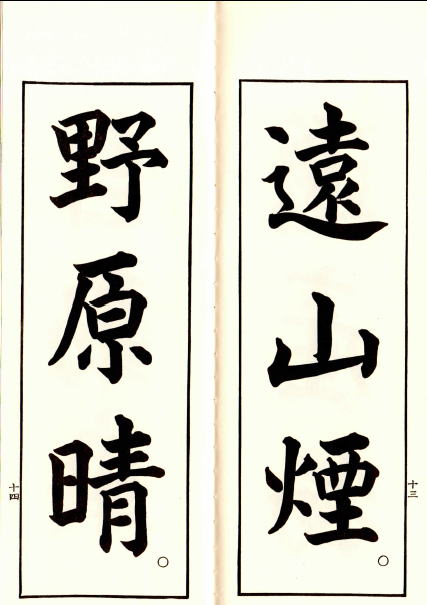 遠山煙
十三
野原晴
十四